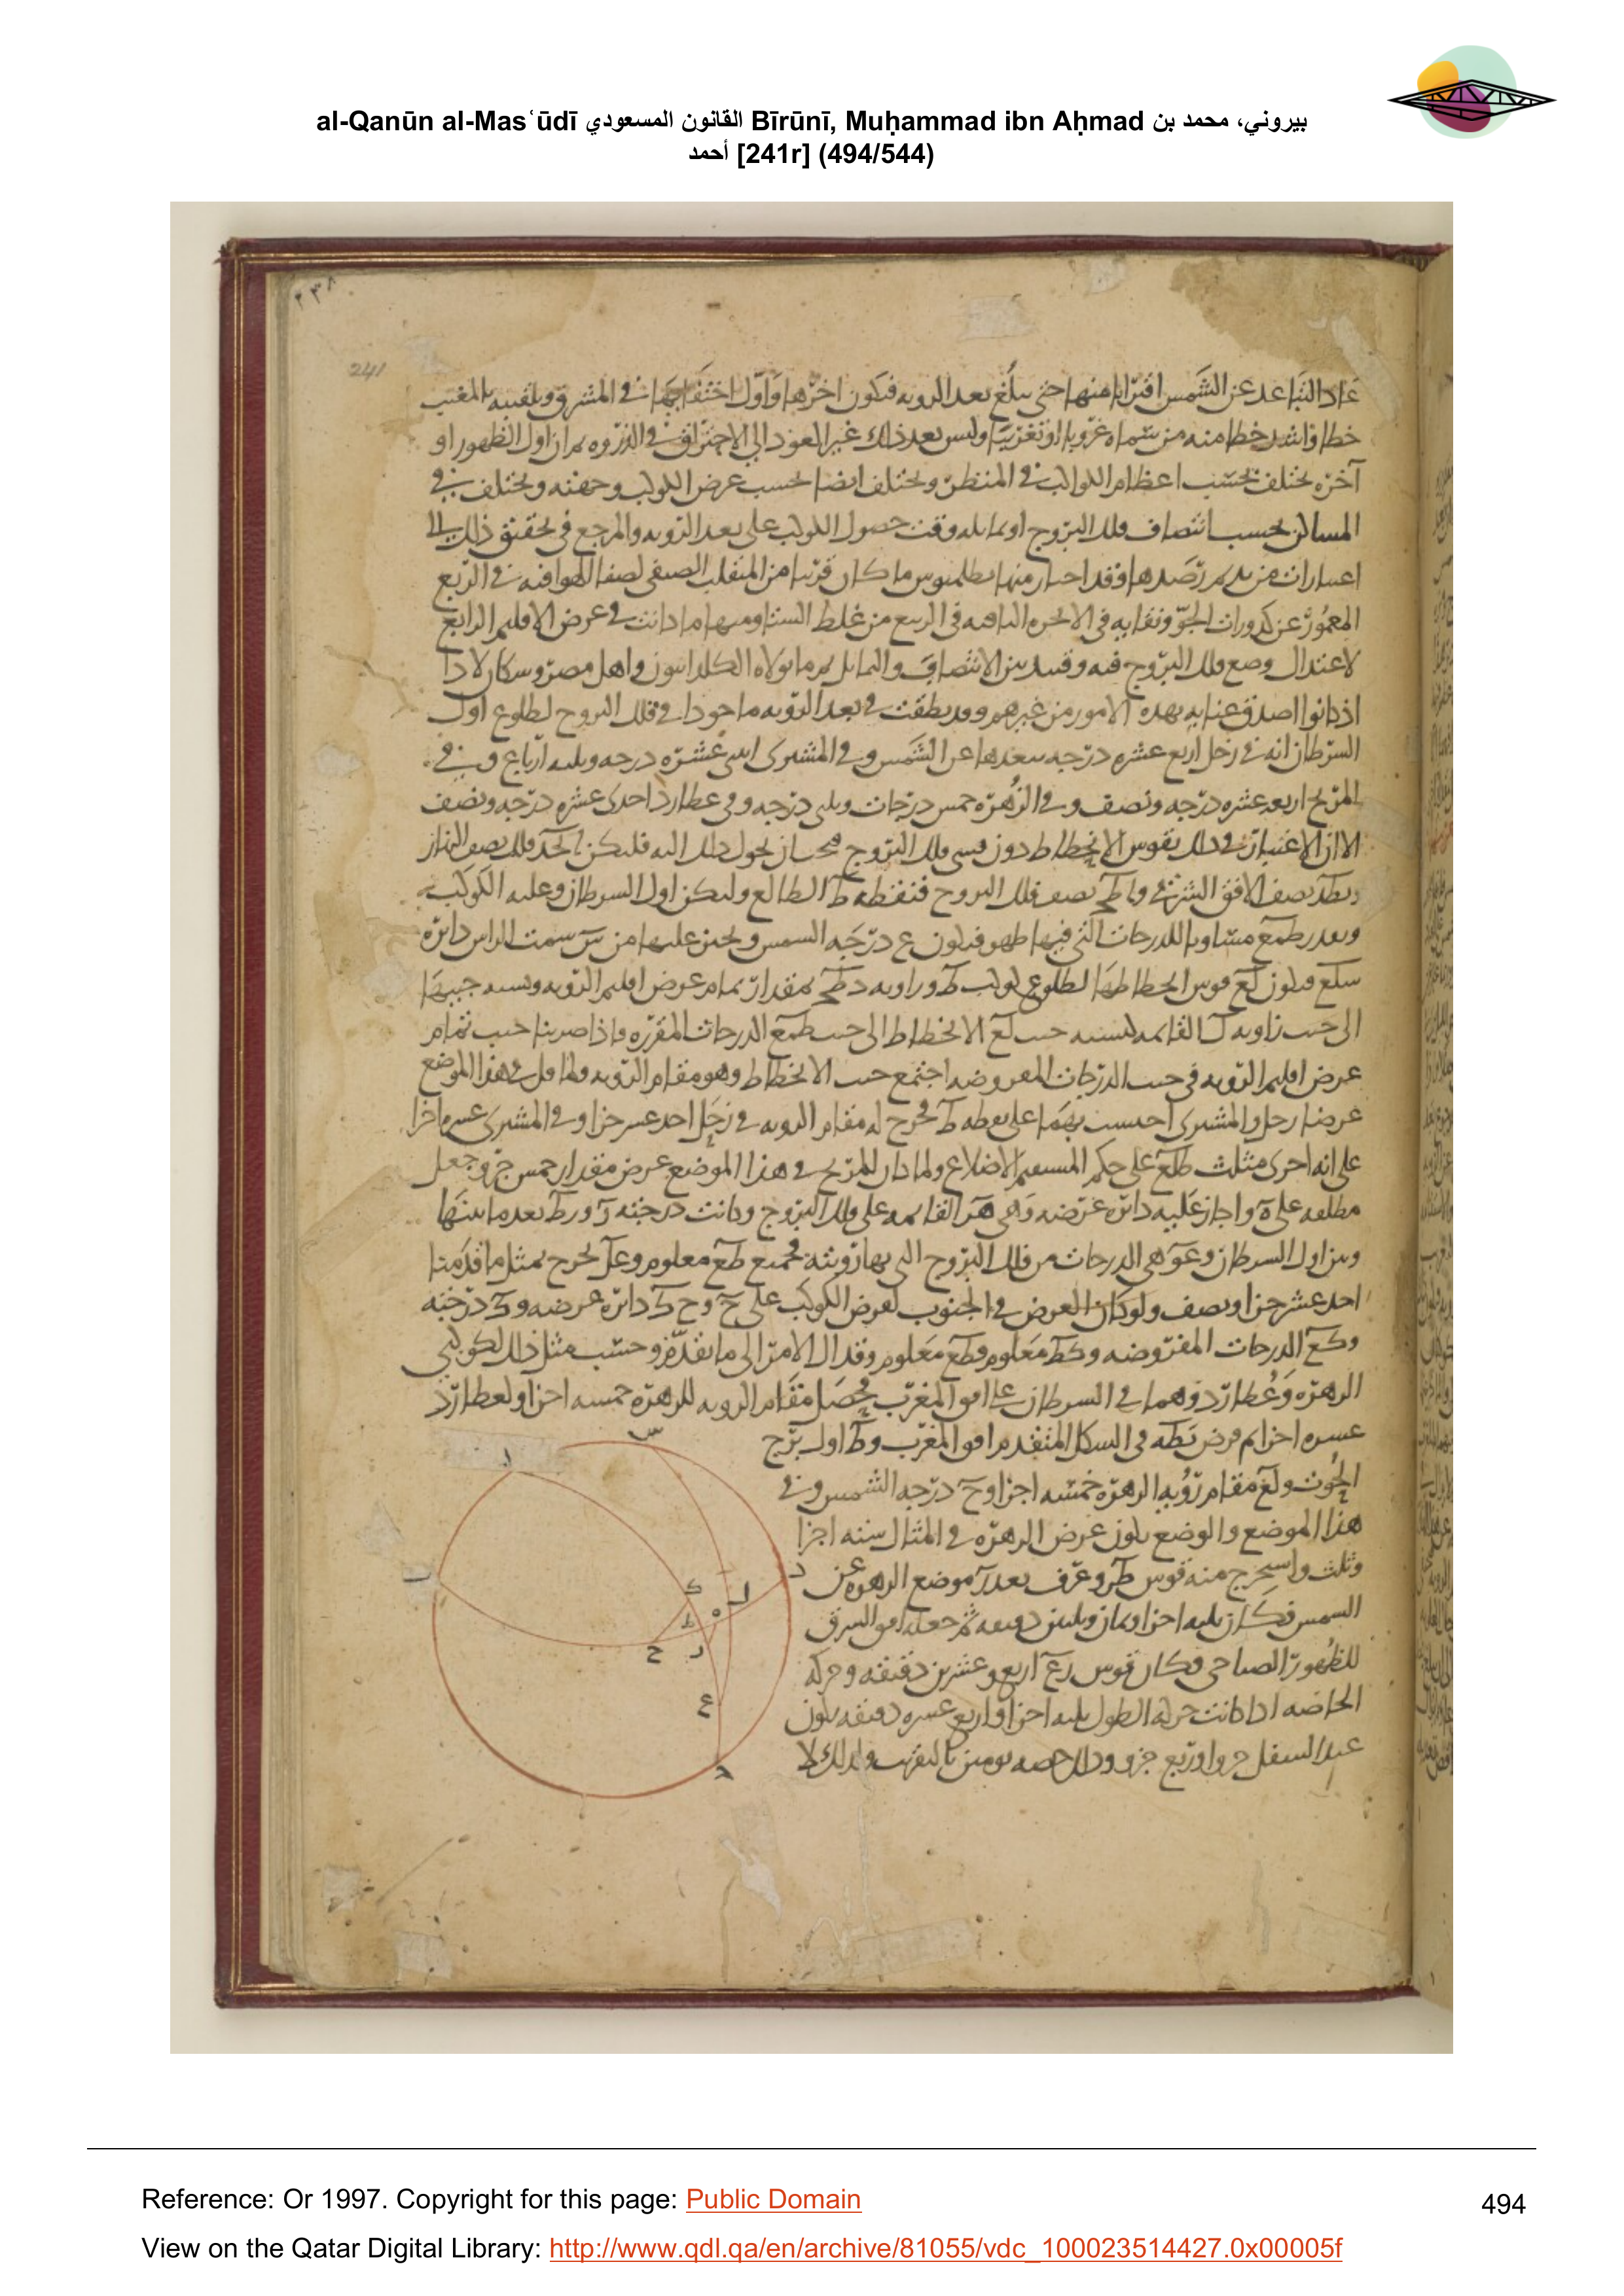 al-Qanūn al-Masʿūdī القانون المسعودي Bīrūnī, Muḥammad ibn Aḥmad بيروني، محمد بن
أحمد [241r] (494/544)
٢٣٨
241
عاد التباعد عن الشمس اقترابا منها حتى يبلغ بعد الرويه فيكون اخرها واول اختفايهما في المشرق ويلقبه بالمغيب
خطا واشد خطا منه من سماه غروبا او تغريبا وليس بعد ذلك غير العود الى الاحتراق في الذروه ثم ان اول الظهور او
آخره يختلف بحسب اعظام الكواكب في المنظر ويختلف ايضا بحسب عرض الكوكب وجهته ويختلف في
المساكن بحسب انتصاف فلك البروج او تمايله وقت حصول الكوكب على بعد الرويه والمرجع في تحقيق ذلك الى
اعتبارات من رصدها فقد اختار منها بطلميوس ما كان قريبا من المنقلب الصيفي لصفا الهوا فيه في الربع
المعمور عن كدورات الجو ونقايه في الابخره في الربيع من غلظ الشتا ومنها ما كانت في عرض الاقليم الرابع
لاعتدال وضع فلك البروج فيه بين الانتصاف والتمايل ثم ما تولاه الكلدانيون واهل مصر وسكان
اذ كانوا اصدق عنايه بهذه الامور من غيرهم في بعد الرويه ماخوذا في فلك البروج لطلوع اول
السرطان انه في زحل اربع عشره درجه بعدها عن الشمس وفي المشترى اثنتى عشره درجه وثلثه ارباع وفي
المريخ اربعه عشره درجه ونصف وفي الزهره خمس درجات وثلثى درجه وفي عطارد احدى عشره درجه ونصف
الا ان الاعتبار في ذلك بقوس الانحطاط دون قسى فلك البروج فيجب ان يحول ذلك اليه فليكن ابجد فلك نصف النهار
وبطد نصف الافق الشرقي واطج نصف فلك البروج فنقطه ط الطالع وليكن اول السرطان وعليه الكوكب
مساويا للدرجات التي فيها ظهر فيكون ع درجه الشمس ونجيز عليها من س سمت الراس دائره
سلع فيكون لع قوس انحطاطها لطلوع كوكب ط وزاويه دطج بمقدار تمام عرض اقليم الرويه ونسبه جيبها
الى جيب زاويه ل القائمه كنسبه جيب لع الانحطاط الى جيب طع الدرجات المقرره فاذا ضربنا جيب تمام
عرض اقليم الرويه في جيب الدرجات المفروضه اجتمع جيب الانحطاط وهو مقام الرويه ولما قل في هذا الموضع
عرضا زحل والمشترى احتسب بهما على نقطه ط فخرج له مقام الرويه في زحل احد عشر جزا وفي المشترى عشره اجزا
على انه اجرى مثلث طلع على حكم المستقيم الاضلاع ولما كان للمريخ في هذا الموضع عرض مقدار خمس جزو جعل
مطلعه على ه واجاز عليه دائره عرضه وهي هر القائمه على فلك البروج وكانت درجته ر ورط بعد ما بينها
وبين اول السرطان وعر هي الدرجات من فلك البروج التي بها رويته فجميع طع معلوم وعل يخرج بمثل ما قدمنا
احد عشر جزا ونصف ولو كان العرض في الجنوب لعرض الكوكب على ح وح ك دائره عرضه وك درجته
وكع الدرجات المفروضه وكط معلوم وطع معلوم وقد ال الامر الى ما تقدم وحسب مثل ذلك لكوكبي
الزهره وعطارد وهما في السرطان على افق المغرب فحصل مقام الرويه للزهره خمسه اجزا ولعطارد
عشره اجزا ثم فرض في الشكل المتقدم افق المغرب وط اول برج
الحوت ولع مقام رويه الزهره خمسه اجزا وع درجه الشمس وفي
هذا الموضع والوضع يكون عرض الزهره في المثال سته اجزا
وثلث واستخرج منه قوس طر وعرف بعد ر موضع الزهره عن
الشمس فكان ثلثه اجزا وثمان وثلثين دقيقه ثم جعله افق الشرق
للظهور الصباحى فكان قوس رع اربع وعشرين دقيقه وحركه
الخاصه اذا كانت حركه الطول ثلثه اجزا واربع عشره دقيقه يكون
عند السفل جزوا وربع جزو وذلك حصه يومين بالتقريب ولذلك لا
س
ا
د
ل
ك
ب
ه
ط
ر
ح
ع
ج
Reference: Or 1997. Copyright for this page: Public Domain
494
View on the Qatar Digital Library: http://www.qdl.qa/en/archive/81055/vdc_100023514427.0x00005f